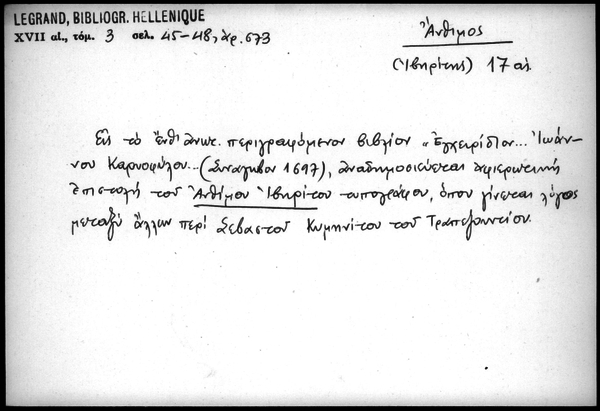 LEGRAND, BIBLIOGR. HELLENIQUE
XVII αἰ., τόμ. 3 σελ. 45-48, ἀρ. 673
Ἄνθιμος
(Ἰβηρίτης) 17 αἰ.
Εἰς τὸ ἔνθ' ἀνωτ. περιγραφόμενον βιβλίον "Ἐγχειρίδιον... Ἰωάν-
νου Καρυοφύλου... (Συναγωβον 1697), ἀναδημοσιεύεται ἀφιερωτικὴ
ἐπιστολὴ τοῦ Ἀνθίμου Ἰβηρίτου τυπογράφου, ὅπου γίνεται λόγος
μεταξὺ ἄλλων περί Σεβαστοῦ Κυμηνίτου τοῦ Τραπεζουντίου.